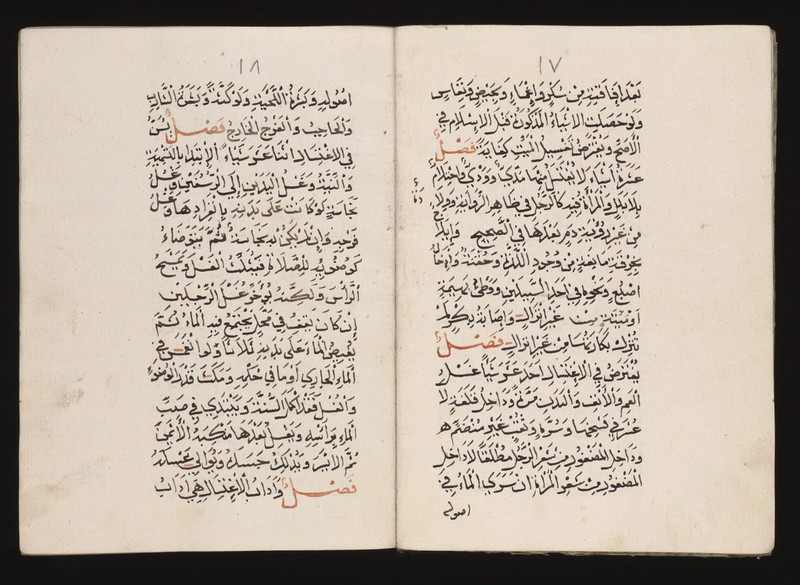 ١٧
بعد افاقته من سكر واغماء وحيض ونفاس
ولو حصلت الاشياء المذكورة قبل الاسلام في
الاصح ويفترض تغسيل الميت كفاية فصل
عشرة اشياء لا يغتسل منها مذي وودي واحتلام
بلا بلل والمرأة فيه كالرجل في ظاهر الرواية وولادة
من غير رؤية دم بعدها في الصحيح وايلاج
بخرقة مانعة من وجود اللذة وحقنة وادخال
اصبع ونحوه في احد السبيلين ووطئ بهيمة
او ميتة من غير انزال واصابة بكر لم
تزل بكارتها من غير انزال فصل
يفترض في الاغتسال احد عشر شيأ غسل
الفم والانف والبدن مرة وداخل قلفة لا
عسر في فسخها وسرة وثقب غير منضم
وداخل المضفور من شعر الرجل مطلقا لا داخل
المضفور من شعر المرأة ان سرى الماء في
اصوله
١٨
اصوله وبشرة اللحية ولو كثة وبشرة الشارب
والحاجب والفرج الخارج فصل يسن
في الاغتسال اثنا عشر شيأ الابتداء بالتسمية
والنية وغسل اليدين الى الرسغين وغسل
نجاسة لو كانت على بدنه بانفرادها وغسل
فرجه وان لم يكن به نجاسة ثم يتوضاء
كوضوئه للصلاة فيثلث الغسل ويمسح
الراس ولكنه يؤخر غسل الرجلين
ان كان يقف في محل يجتمع فيه الماء ثم
يفيض الماء على بدنه ثلاثا ولو انغمس في
الماء الجاري او ما في حكمه ومكث قدر الوضوء
والغسل فقد اكمل السنة ويبتدي في صب
الماء براسه ويغسل بعدها منكبه الايمن
ثم الايسر ويدلك جسده ويوالي غسله
فصل واداب الاغتسال هي اداب